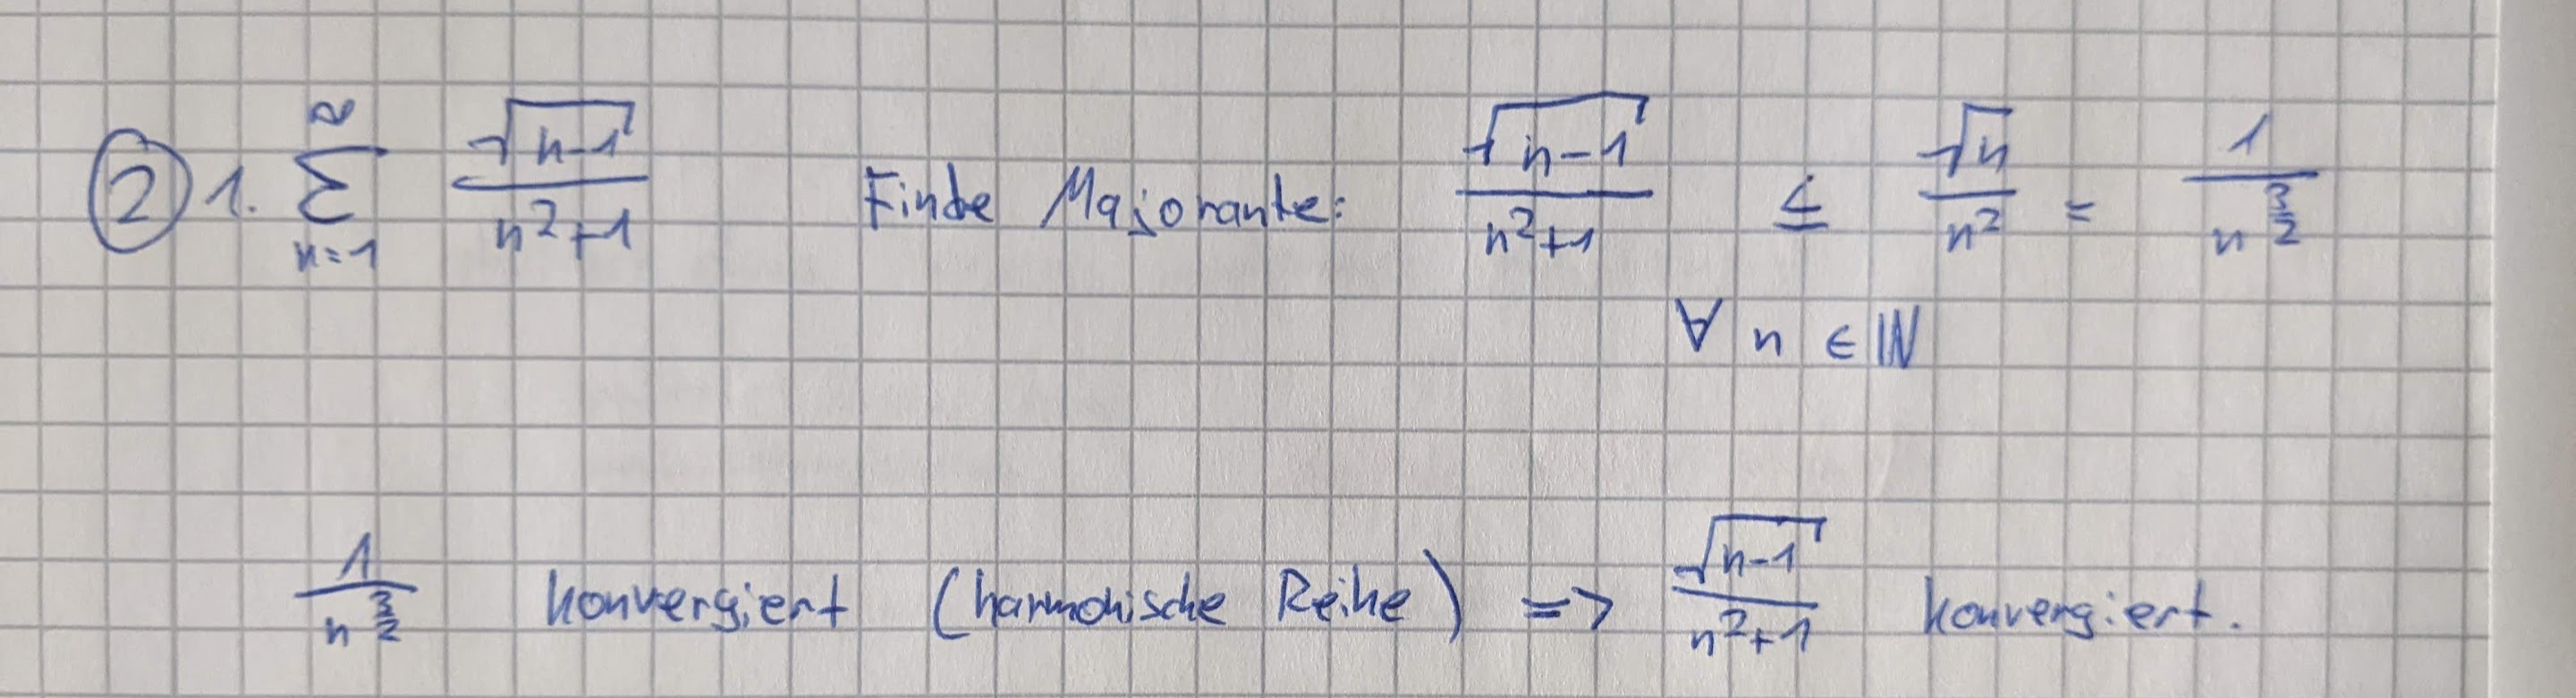 ② 1. ∑_{n=1}^{∞} √(n-1) / (n²+1) Finde Majorante: √(n-1) / (n²+1) ≤ √n / n² = 1 / n^{3/2}
∀ n ∈ ℕ
1 / n^{3/2} konvergiert (harmonische Reihe) => √(n-1) / (n²+1) konvergiert.